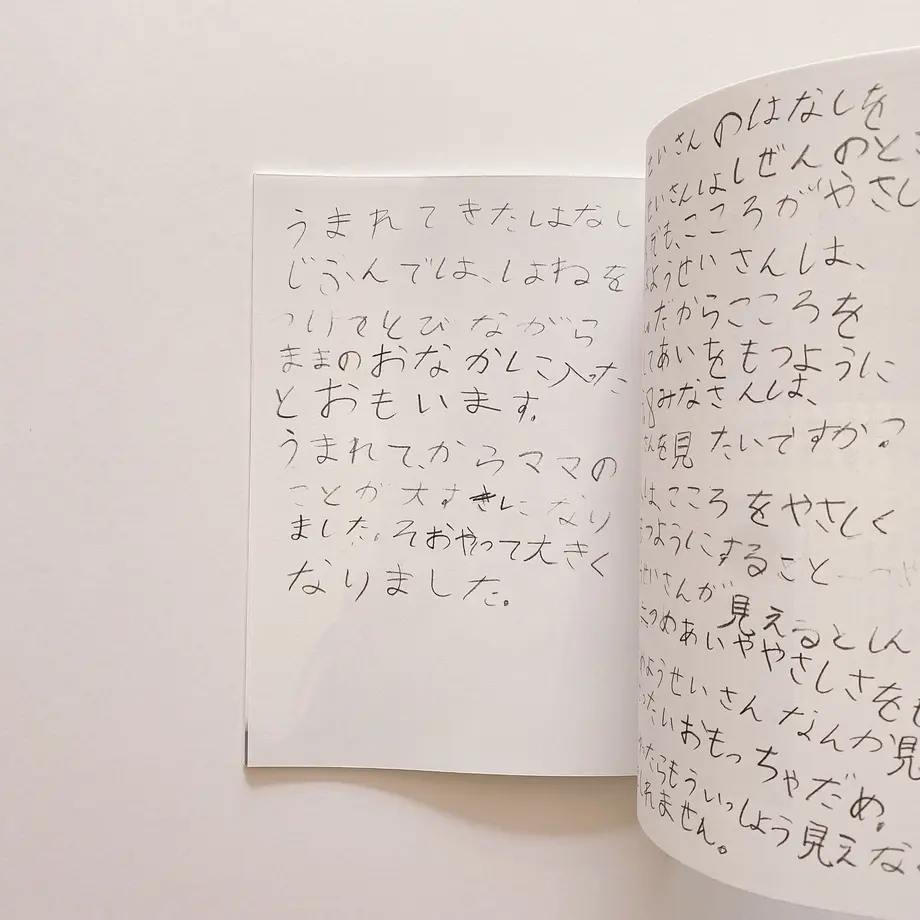 うまれてきたはなし
じぶんでは、はねを
つけてとびながら
ままのおなかに入った
とおもいます。
うまれて、からママの
ことが大すきになり
ました。そおやって大きく
なりました。
せいさんのはなしを
せいさんはしぜんのとこ
でも、こころがやさし
ようせいさんは、
だからこころを
してあいをもつように
みなさんは、
さんを見たいですか？
は、こころをやさしく
つようにすること
せいさんが見えるとしん
つめあいややさしさをも
のようせいさんなんか見
ったいおもっちゃだめ。
たらもういっしょう見えな
しれません。